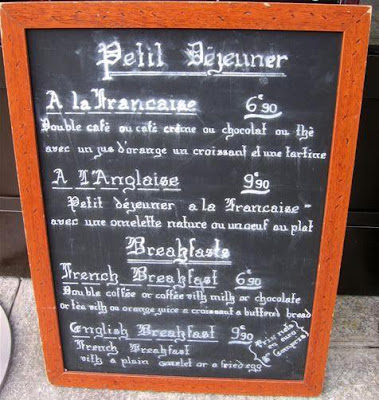 Petit Déjeuner
A la Francaise 6€90
Double café ou café crème ou chocolat ou thè
avec un jus d'orange un croissant et une tartine
A l'Anglaise 9€90
Petit déjeuner a la Francaise
avec une omelette nature ou un oeuf au plat
Breakfasts
French Breakfast 6€90
Double coffee or coffee with milk or chocolate
or tea with an orange juice a croissant a buttered bread
English Breakfast 9€90
French Breakfast
with a plain omelet or a fried egg
Prix nets
en euro